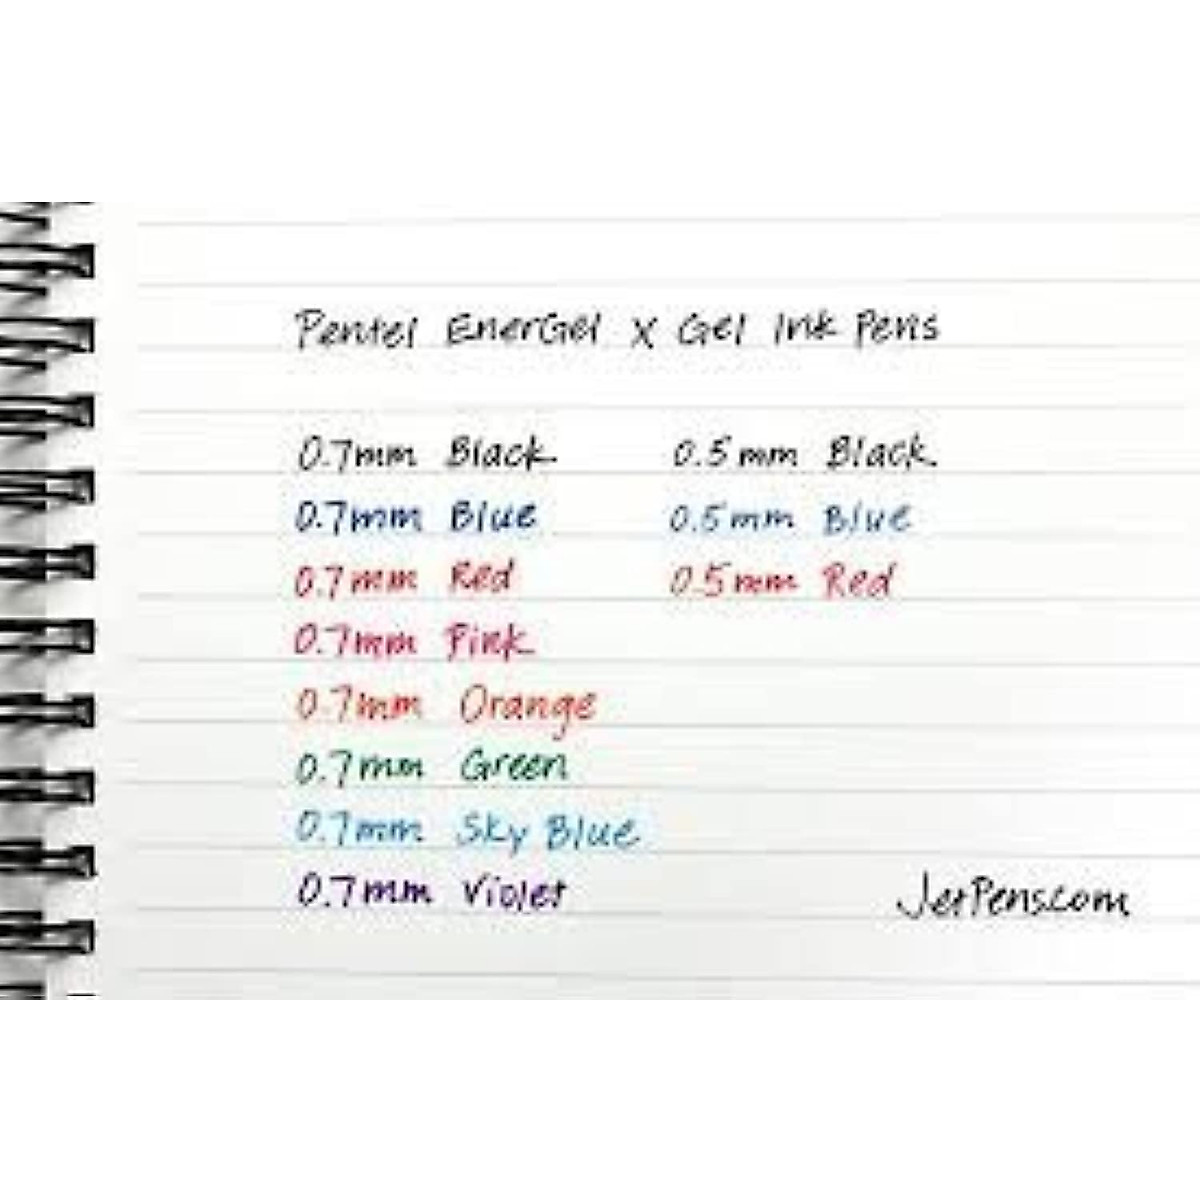 Pentel EnerGel X Gel Ink Pens
0.7mm Black 0.5mm Black
0.7mm Blue 0.5mm Blue
0.7mm Red 0.5mm Red
0.7mm Pink
0.7mm Orange
0.7mm Green
0.7mm Sky Blue
0.7mm Violet
JetPens.com